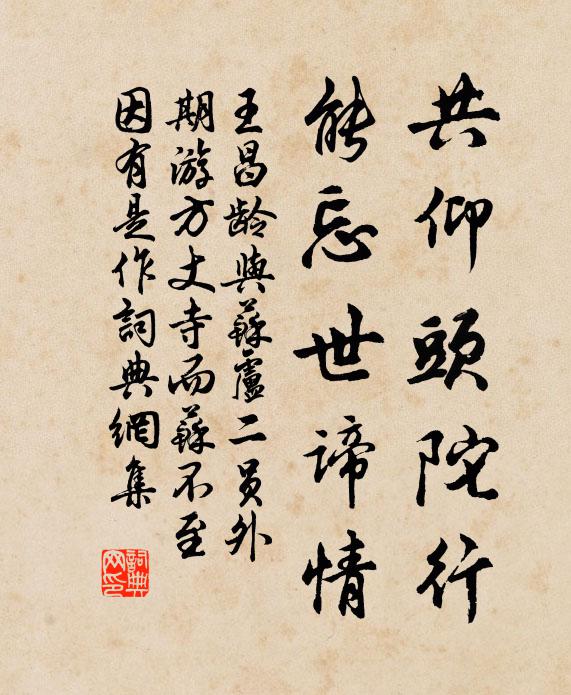 共仰頭陀行
能忘世諦情
王昌龄與蘇盧二員外
期游方丈寺而蘇不至
因有是作詞典網集
詞典網印